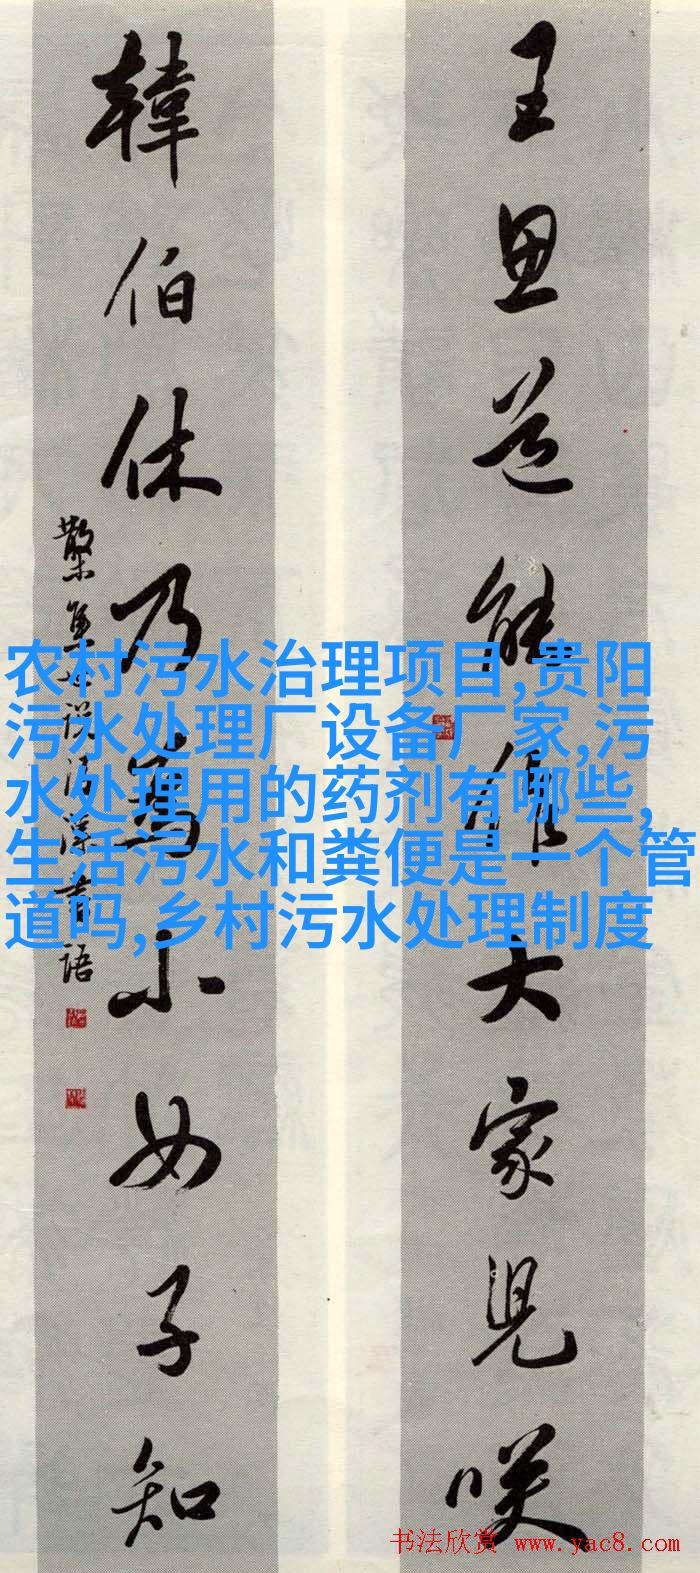 王思道能作大家兒咲
韓伯休乃為小女子知
农村污水治理项目,贵阳
污水处理厂设备厂家,污
水处理用的药剂有哪些,
生活污水和粪便是一个管
道吗,乡村污水处理制度
书法欣赏 www.yac8.com